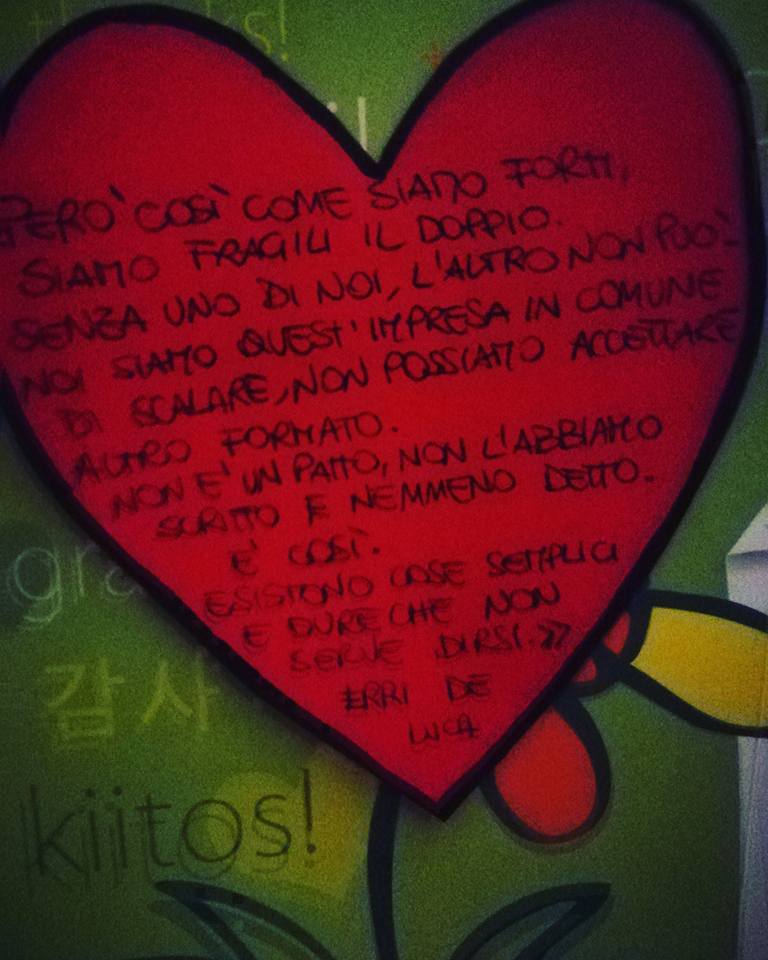 thanks!
PERO' COSÌ COME SIAMO FORTI,
SIAMO FRAGILI IL DOPPIO.
SENZA UNO DI NOI, L'ALTRO NON PUO'.
NOI SIAMO QUEST'IMPRESA IN COMUNE
DI SCALARE, NON POSSIAMO ACCETTARE
ALTRO FORMATO.
NON E' UN PATTO, NON L'ABBIAMO
SCRITTO E NEMMENO DETTO.
E' COSÌ.
ESISTONO COSE SEMPLICI
E DURE CHE NON
SERVE DIRSI.»
ERRI DE
LUCA
gra
감사
kiitos!